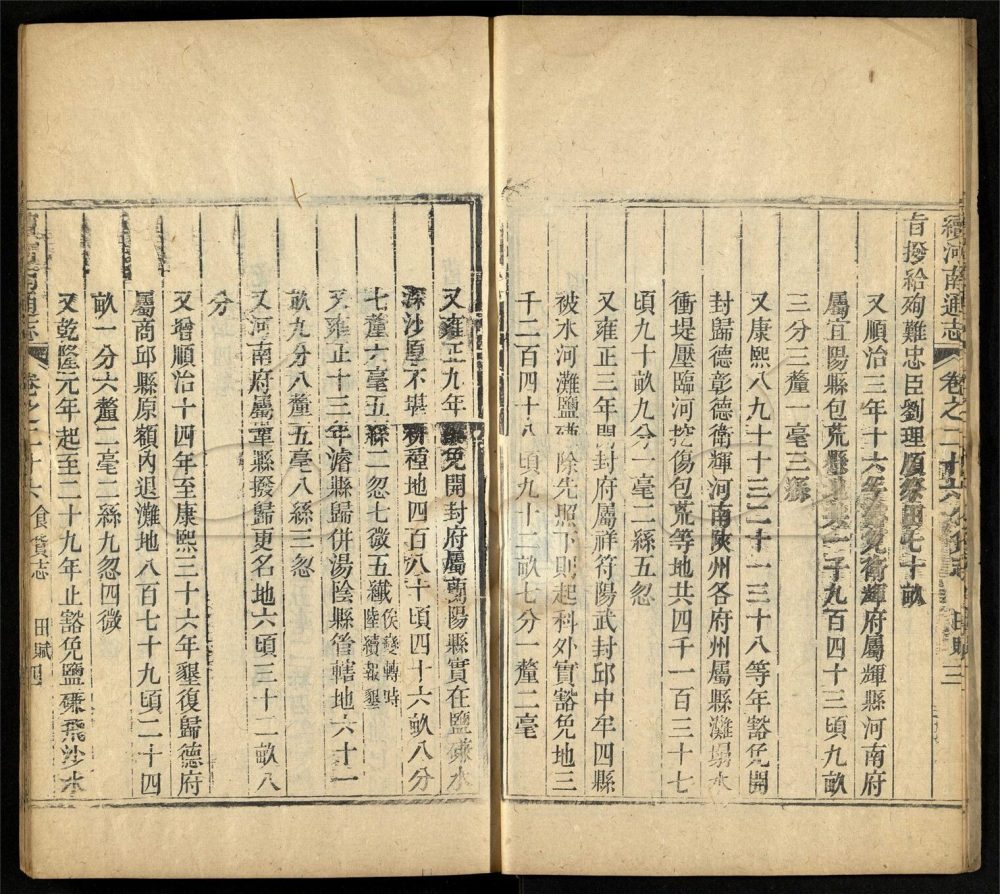 續河南通志 卷之二十六 食貨志 田賦 三
旨撥給殉難忠臣劉理順祭田七十畝
又順治三年十六年豁免衛輝府屬輝縣河南府
屬宜陽縣包荒縣地一千九百四十三頃九畝
三分三釐一毫三絲
又康熙八九十十三二十一三十八等年豁免開
封歸德彰德衛輝河南陝州各府州屬縣灘塌水
衝堤壓臨河挖傷包荒等地共四千一百三十七
頃九十畝九分一毫二絲五忽
又雍正三年開封府屬祥符陽武封邱中牟四縣
被水河灘鹽 除先照下則起科外實豁免地三
千二百四十八頃九十三畝七分一釐二毫
又雍正九年豁免開封府屬蘭陽縣實在鹽鹻水
深沙厚不堪耕種地四百八十頃四十六畝八分
七釐六毫五絲二忽七微五纖俟變轉時陸續報墾
又雍正十三年濬縣歸併湯陰縣管轄地六十一
畝九分八釐五毫八絲三忽
又河南府屬鞏縣撥歸更名地六頃三十二畝八
分
又增順治十四年至康熙三十六年墾復歸德府
屬商邱縣原額內退灘地八百七十九頃二十四
畝一分六釐二毫二絲九忽四微
又乾隆元年起至二十九年止豁免鹽鹻飛沙水
續河南通志 卷之二十六 食貨志 田賦 四